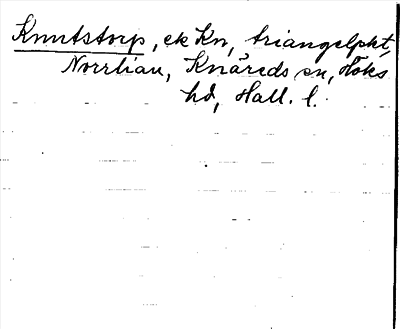 Knutstorp, ek Kn, triangelpkt,
Norrlian, Knäreds sn, Höks
hd, Hall. l.